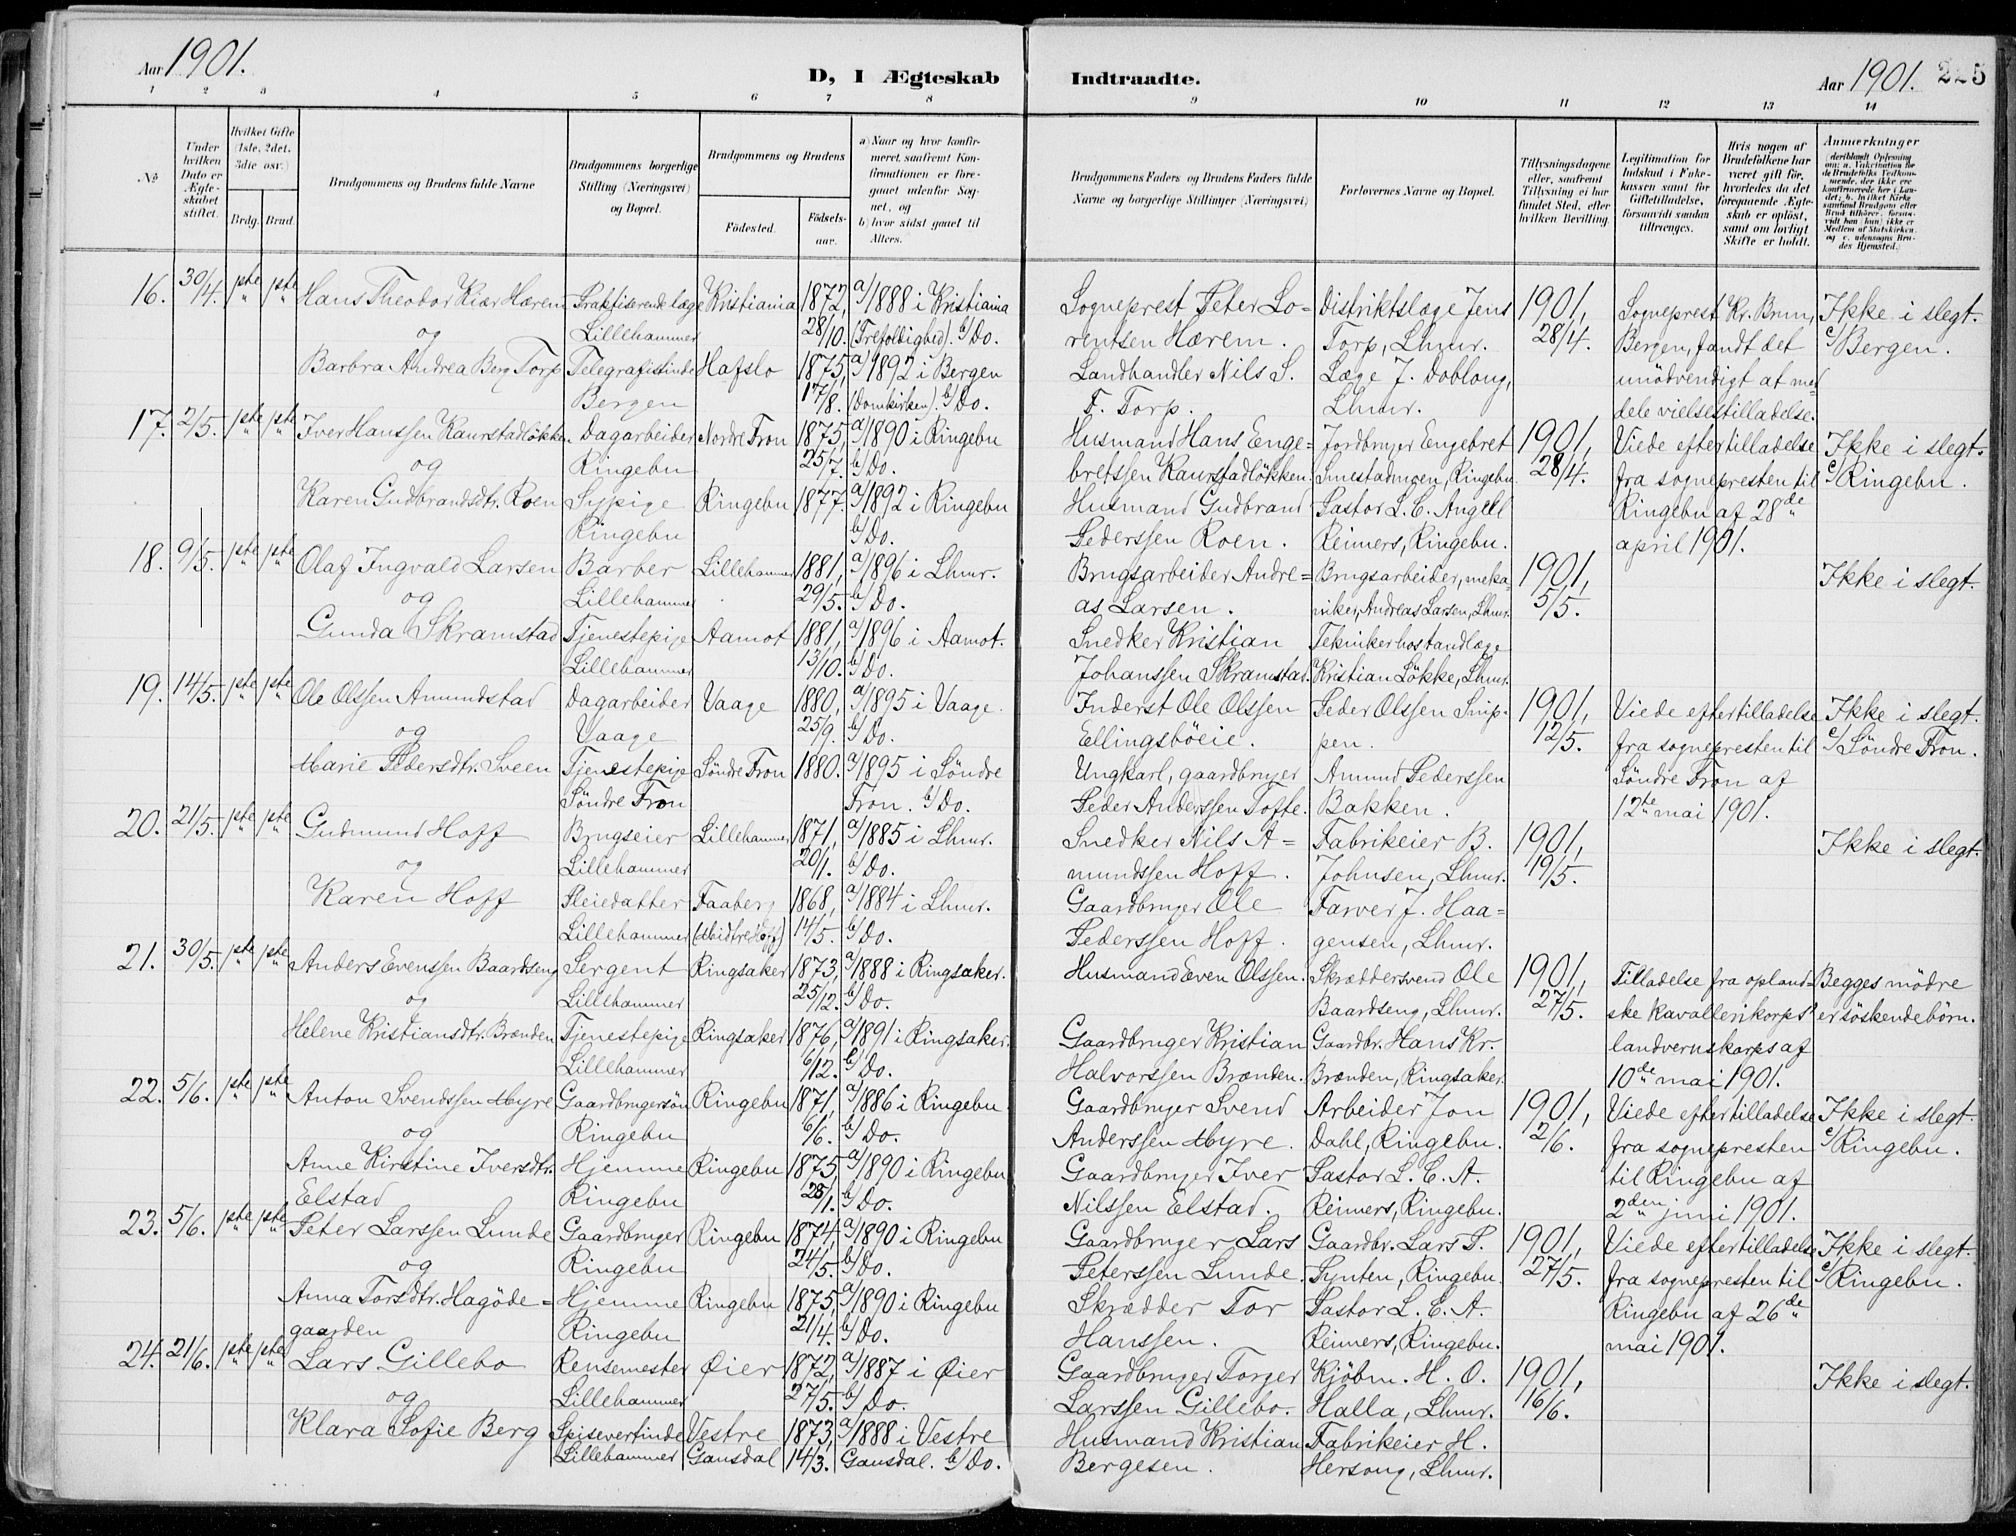 Aar 1901.
D, I Ægteskab
Indtraadte.
Aar 1901.
225
1 2 3 4 5 6 7 8 9 10 11 12 13 14
No.
Under hvilken Dato er Ægteskabet stiftet.
Hvilket Gifte (1ste, 2det, 3die osv.)
Brdg. Brud.
Brudgommens og Brudens fulde Navne
Brudgommens borgerlige Stilling (Næringsvei) og Bopæl.
Brudgommens og Brudens
Födested.
Födsels-aar.
a) Naar og hvor konfirmeret, saafremt Konfirmationen er foregaaet udenfor Sognet, og
b) hvor sidst gaaet til Alters.
Brudgommens Faders og Brudens Faders fulde Navne og borgerlige Stillinger (Næringsvei)
Forlovernes Navne og Bopæl.
Tillysningsdagene eller, saafremt Tillysning ei har fundet Sted, efter hvilken Bevilling.
Legitimation for Indskud i Enkekassen samt for Giftetilladelse, forsaavidt saadan tiltrænges.
Hvis nogen af Brudefolkene har været gift før, hvorledes da det foregaaende Ægteskab er oplöst, samt om lovligt Skifte er holdt.
Anmærkninger
16. 30/4. 1ste 1ste Hans Theodor Kiær Hærem Praktiserende læge Kristiania 1872, a/1888 i Kristiania Sogneprest Peter Lo- Distriktslæge Jens 1901, Sogneprest Kr. Brun, Ikke i slegt.
og Lillehammer 28/10. (Trefoldighed). b/Do. rentsen Hærem. Torp, Lhmr. 28/4. Bergen, fandt det c/Bergen.
Barbra Andrea Berg Torp Telegrafistinde Hafslo 1875, a/1892 i Bergen Landhandler Nils S. Læge J. Doblong, unödvendigt at med=
Bergen 17/8. (Domkirken). b/Do. F. Torp. Lhmr. dele vielsestilladelse.
17. 2/5. 1ste 1ste Iver Hanssen Kaurstadløkken Dagarbeider Nordre Fron 1875, a/1890 i Ringebu Husmand Hans Enge- Jordbruger Engebret 1901, Viede efter tilladelse Ikke i slegt.
og Ringebu 25/7. b/Do. bretssen Kaurstadløkken. Smestadmoen, Ringebu 28/4. fra sognepresten til c/Ringebu.
Karen Gudbrandsdtr. Roen Sypige Ringebu 1877. a/1892 i Ringebu Husmand Gudbrand Pastor L. C. Angell Ringebu af 28de
Ringebu b/Do. Pederssen Roen. Reimers, Ringebu. april 1901.
18. 9/5. 1ste 1ste Olaf Ingvald Larsen Barber Lillehammer 1881, a/1896 i Lhmr. Brugsarbeider Andre= Brugsarbeider, meka- 1901, Ikke i slegt.
og Lillehammer 29/5. b/Do. as Larsen. niker, Andreas Larsen, Lhmr. 5/5.
Gunda Skramstad Tjenestepige Aamot 1881, a/1896 i Aamot. Snedker Kristian Tekniker
Lillehammer 13/10. b/Do. Johanssen Skramstad. Kristian Løkke, Lhmr.
19. 14/5. 1ste 1ste Ole Olssen Amundstad Dagarbeider Vaage 1880, a/1895 i Vaage. Inderst Ole Olssen Peder Olssen Snip- 1901, Viede efter tilladelse Ikke i slegt.
og Vaage 25/9. b/Do. Ellingsböeie. pen. 12/5. fra sognepresten til c/Söndre Fron.
Marie Pedersdtr. Sveen Tjenestepige Söndre Fron 1880. a/1895 i Söndre Ungkarl, gaardbruger Amund Pederssen Söndre Fron af
Söndre Fron Fron. b/Do. Peder Anderssen Tofte. Bakken. 12te mai 1901.
20. 21/5. 1ste 1ste Gudmund Hoff Brugseier Lillehammer 1871, a/1885 i Lhmr. Snedker Nils A= Fabrikeier B. 1901, Ikke i slegt.
og Lillehammer 20/1. b/Do. mundssen Hoff. Johnsen, Lhmr. 19/5.
Karen Hoff Pleiedatter Faaberg 1868, a/1884 i Lhmr. Gaardbruger Ole Farver J. Haa=
Lillehammer (Midtre Hoff) 14/5. b/Do. Pederssen Hoff. gensen, Lhmr.
21. 30/5. 1ste 1ste Anders Evenssen Baardseng Sergent Ringsaker 1873, a/1888 i Ringsaker. Husmand Even Olssen. Skræddersvend Ole 1901, Tilladelse fra opland= Begges mödre
og Lillehammer 25/12. b/Do. Baardseng, Lhmr. 27/5. ske kavallerikorps' er söskendebörn.
Helene Kristiansdtr. Brænden Tjenestepige Ringsaker 1876, a/1891 i Ringsaker. Gaardbruger Kristian Gaardbr. Hans Kr. landvernskorps af
Lillehammer 6/12. b/Do. Halvorssen Brænden. Brænden, Ringsaker. 10de mai 1901.
22. 5/6. 1ste 1ste Anton Svendssen Myre Gaardbrugersön Ringebu 1871, a/1886 i Ringebu. Gaardbruger Svend Arbeider Jon 1901, Viede efter tilladelse Ikke i slegt.
og Ringebu 6/6. b/Do. Anderssen Myre. Dahl, Ringebu. 2/6. fra sognepresten c/Ringebu.
Anne Kirstine Iversdtr. Hjemme Ringebu 1875, a/1890 i Ringebu Gaardbruger Iver Pastor L. C. A. til Ringebu af
Elstad Ringebu 28/1. b/Do. Nilssen Elstad. Reimers, Ringebu. 2den juni 1901.
23. 5/6. 1ste 1ste Peter Larssen Lunde Gaardbruger Ringebu 1874 a/1890 i Ringebu Gaardbruger Lars Gaardbr. Lars P. 1901, Viede efter tilladelse Ikke i slegt.
og Ringebu 24/5. b/Do. Peterssen Lunde. Synten, Ringebu. 27/5. fra sognepresten til c/Ringebu.
Anna Torsdtr. Hagöde= Hjemme Ringebu 1875, a/1890 i Ringebu Skrædder Tor Pastor L. C. A. Ringebu af 26de
gaarden Ringebu 21/4. b/Do. Hanssen. Reimers, Ringebu. mai 1901.
24. 21/6. 1ste 1ste Lars Gillebo Rensemester Øier 1872, a/1887 i Øier Gaardbruger Torger Kjöbm. H. O. 1901, Ikke i slegt.
og Lillehammer 27/5. b/Do. Larssen Gillebo. Halla, Lhmr. 16/6.
Klara Sofie Berg Spisevertinde Vestre 1873, a/1888 i Vestre Husmand Kristian Fabrikeier H.
Lillehammer Gausdal 14/3. Gausdal. b/Do. Bergesen. Hersoug, Lhmr.